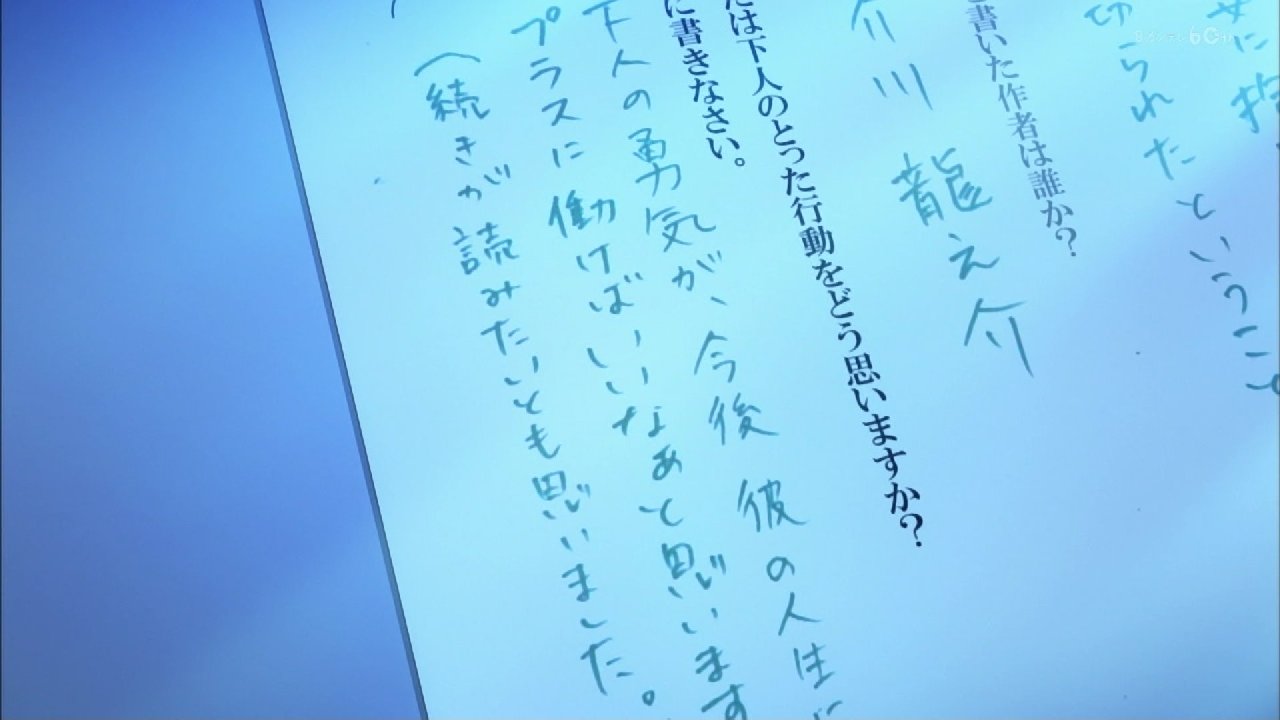 切られたということ
書いた作者は誰か?
介川龍之介
は下人のとった行動をどう思いますか?
に書きなさい。
下人の勇気が、今後彼の人生に
プラスに働けばいいなあと思います
(続きが読みたいとも思いました。